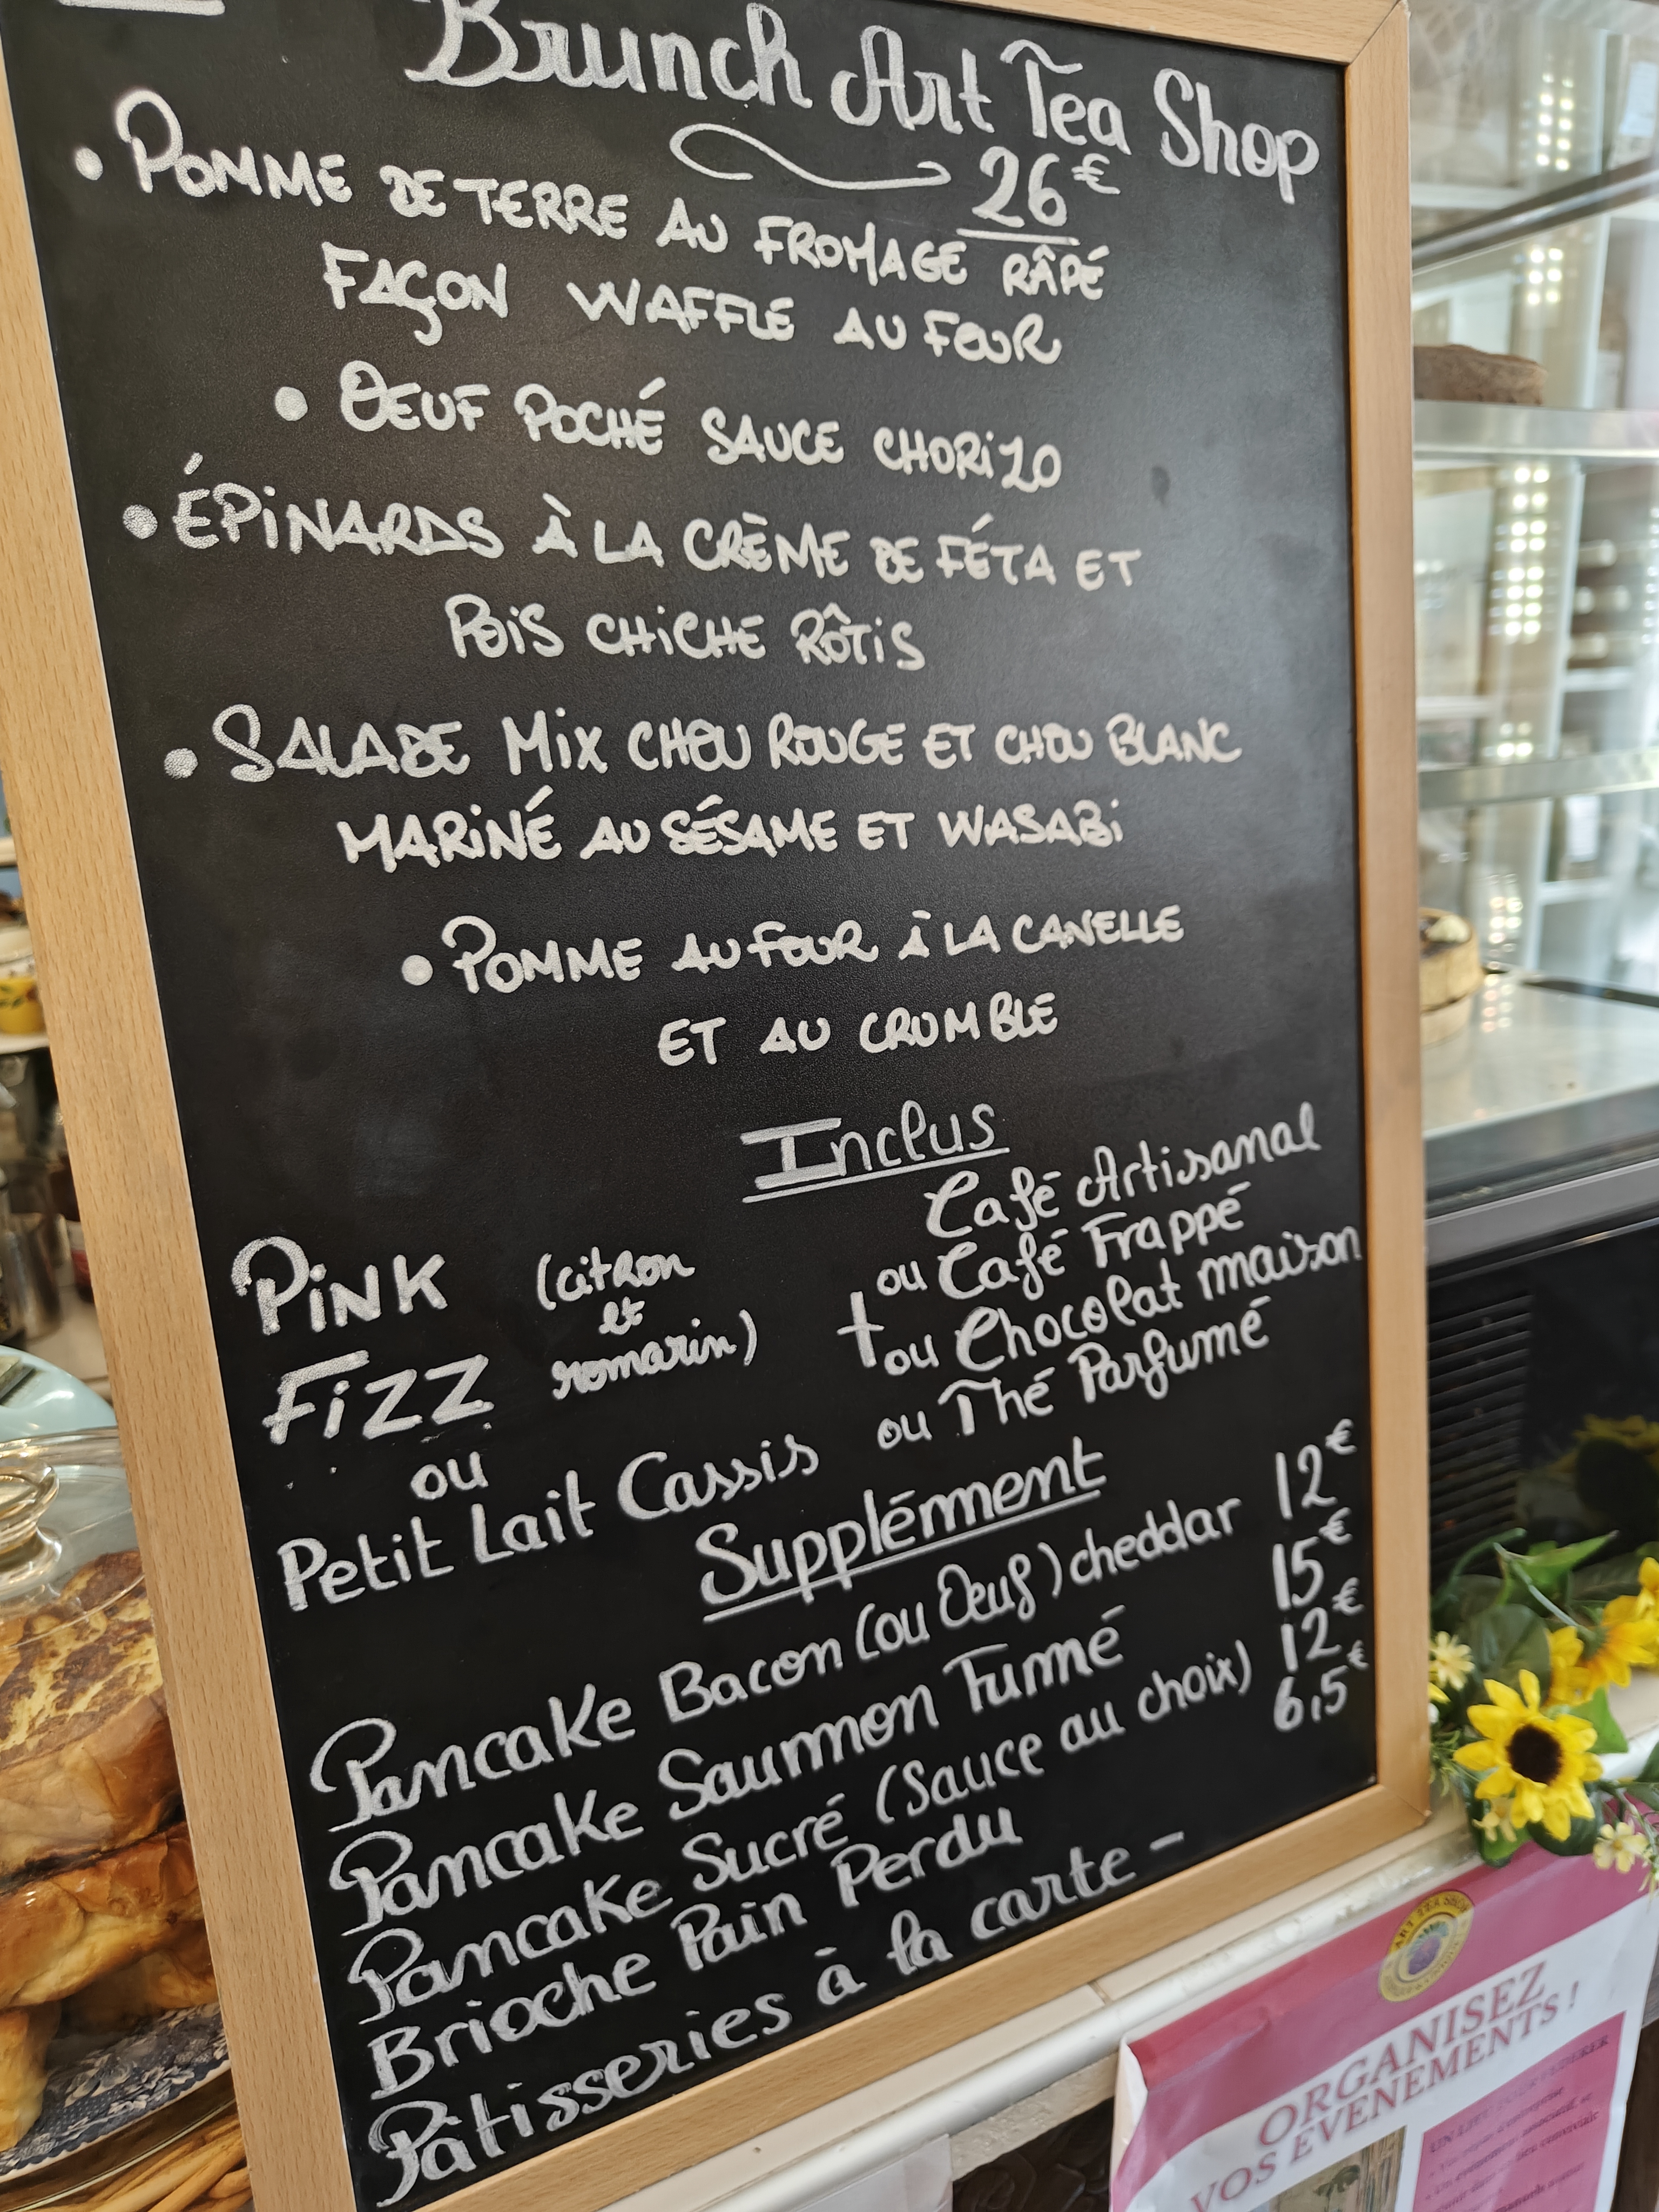 Brunch Art Tea Shop
26€
• POMME DE TERRE AU FROMAGE RÂPÉ
FAÇON WAFFLE AU FOUR
• OEUF POCHÉ SAUCE CHORIZO
• ÉPINARDS À LA CRÈME DE FÉTA ET
POIS CHICHE RÔTIS
• SALADE MIX CHOU ROUGE ET CHOU BLANC
MARINÉ AU SÉSAME ET WASABI
• POMME AU FOUR À LA CANELLE
ET AU CRUMBLE
Inclus
PINK
FIZZ
(citron
et
romarin)
ou
Petit Lait Cassis
+
Café Artisanal
ou Café Frappé
ou Chocolat maison
ou Thé Parfumé
Supplément
Pancake Bacon (ou Oeuf) cheddar 12€
Pancake Saumon Fumé 15€
Pancake Sucré (Sauce au choix) 12€
Brioche Pain Perdu 6,5€
Pâtisseries à la carte -
ART TEA SHOP
ORGANISEZ
VOS EVENEMENTS !